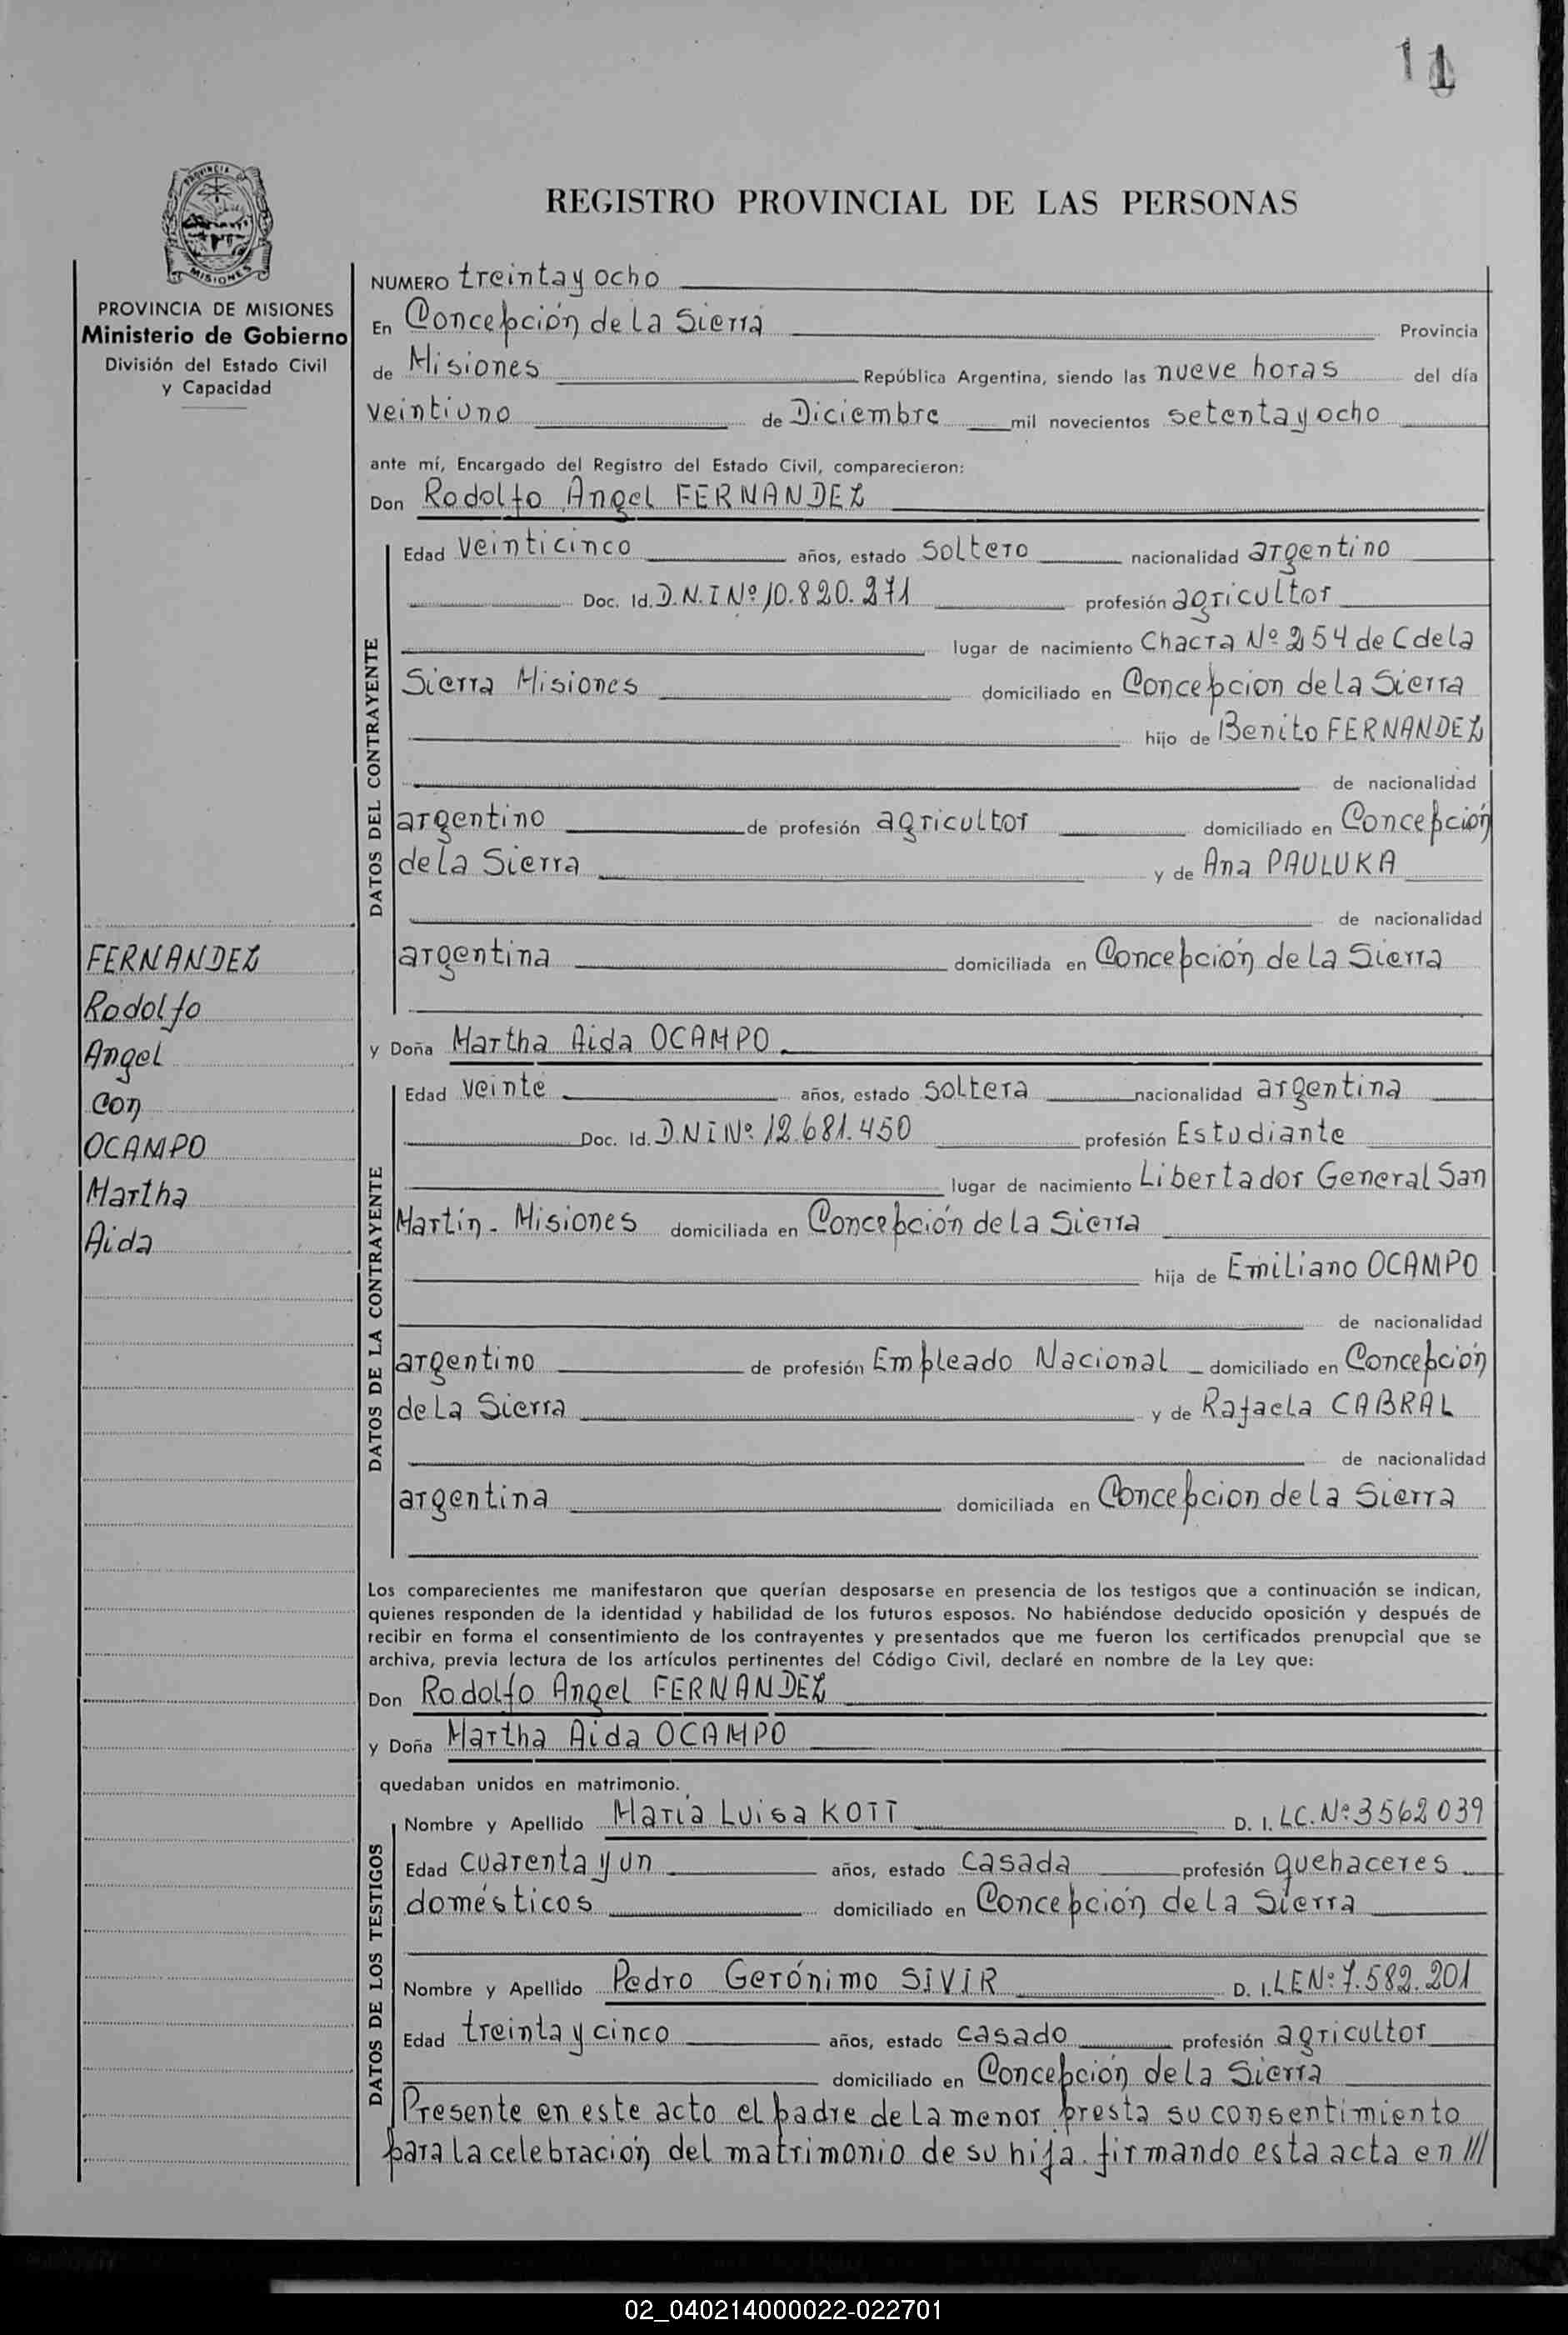 11
PROVINCIA
MISIONES
PROVINCIA DE MISIONES
Ministerio de Gobierno
División del Estado Civil
y Capacidad
REGISTRO PROVINCIAL DE LAS PERSONAS
NUMERO treinta y ocho
En Concepción de la Sierra Provincia
de Misiones República Argentina, siendo las nueve horas del día
veintiuno de Diciembre mil novecientos setenta y ocho
ante mí, Encargado del Registro del Estado Civil, comparecieron:
Don Rodolfo Angel FERNANDEZ
DATOS DEL CONTRAYENTE
Edad veinticinco años, estado soltero nacionalidad argentino
Doc. Id. D.N.I Nº 10.820.271 profesión agricultor
lugar de nacimiento Chacra Nº 254 de C de la
Sierra Misiones domiciliado en Concepcion de la Sierra
hijo de Benito FERNANDEZ
de nacionalidad
argentino de profesión agricultor domiciliado en Concepción
de la Sierra y de Ana PAULUKA
de nacionalidad
argentina domiciliada en Concepción de la Sierra
FERNANDEZ
Rodolfo
Angel
con
OCAMPO
Martha
Aida
y Doña Martha Aida OCAMPO.
DATOS DE LA CONTRAYENTE
Edad veinte años, estado soltera nacionalidad argentina
Doc. Id. D.N.I Nº 12.681.450 profesión Estudiante
lugar de nacimiento Libertador General San
Martín - Misiones domiciliada en Concepción de la Sierra
hija de Emiliano OCAMPO
de nacionalidad
argentino de profesión Empleado Nacional domiciliado en Concepción
de La Sierra y de Rafaela CABRAL
de nacionalidad
argentina domiciliada en Concepcion de la Sierra
Los comparecientes me manifestaron que querían desposarse en presencia de los testigos que a continuación se indican,
quienes responden de la identidad y habilidad de los futuros esposos. No habiéndose deducido oposición y después de
recibir en forma el consentimiento de los contrayentes y presentados que me fueron los certificados prenupcial que se
archiva, previa lectura de los artículos pertinentes del Código Civil, declaré en nombre de la Ley que:
Don Rodolfo Angel FERNANDEZ
y Doña Martha Aida OCAMPO
quedaban unidos en matrimonio.
DATOS DE LOS TESTIGOS
Nombre y Apellido María Luisa KOTT D. I. LC. Nº 3562039
Edad cuarenta y un años, estado casada profesión quehaceres
domésticos domiciliado en Concepción de la Sierra
Nombre y Apellido Pedro Gerónimo SIVIR D. I. LE Nº 7.582.201
Edad treinta y cinco años, estado casado profesión agricultor
domiciliado en Concepción de la Sierra
Presente en este acto el padre de la menor presta su consentimiento
para la celebración del matrimonio de su hija. firmando esta acta en ///
02_040214000022-022701